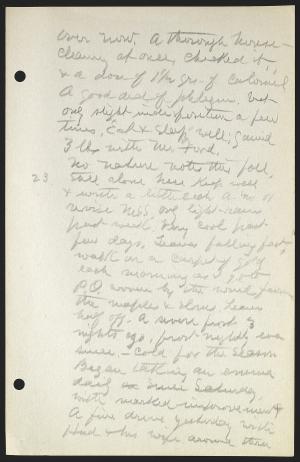 over now. A thorough house-
cleaning at once, checked it,
& a dose of 1½ grs. of calomel
A good deal of phlegm. but
only slight indisposition a few
times, Eat & sleep well; gained
3 lbs with Mr. Ford.
No nature notes this fall,
23 Still alone here keep well
& write a little each A.M. or
revise MSS, only light rains
past week, Very cool past
few days, Leaves falling fast,
walk on a carpet of gold
each morning as I go to
P.O. corner by the road from
the maples & elms. Leaves
half off. A severe frost 3
nights ago, frost nightly ever
since, - cold for the season
Began taking an enema
daily since Saturday,
with marked improvement
A fine drive yesterday with
Hud & his wife around